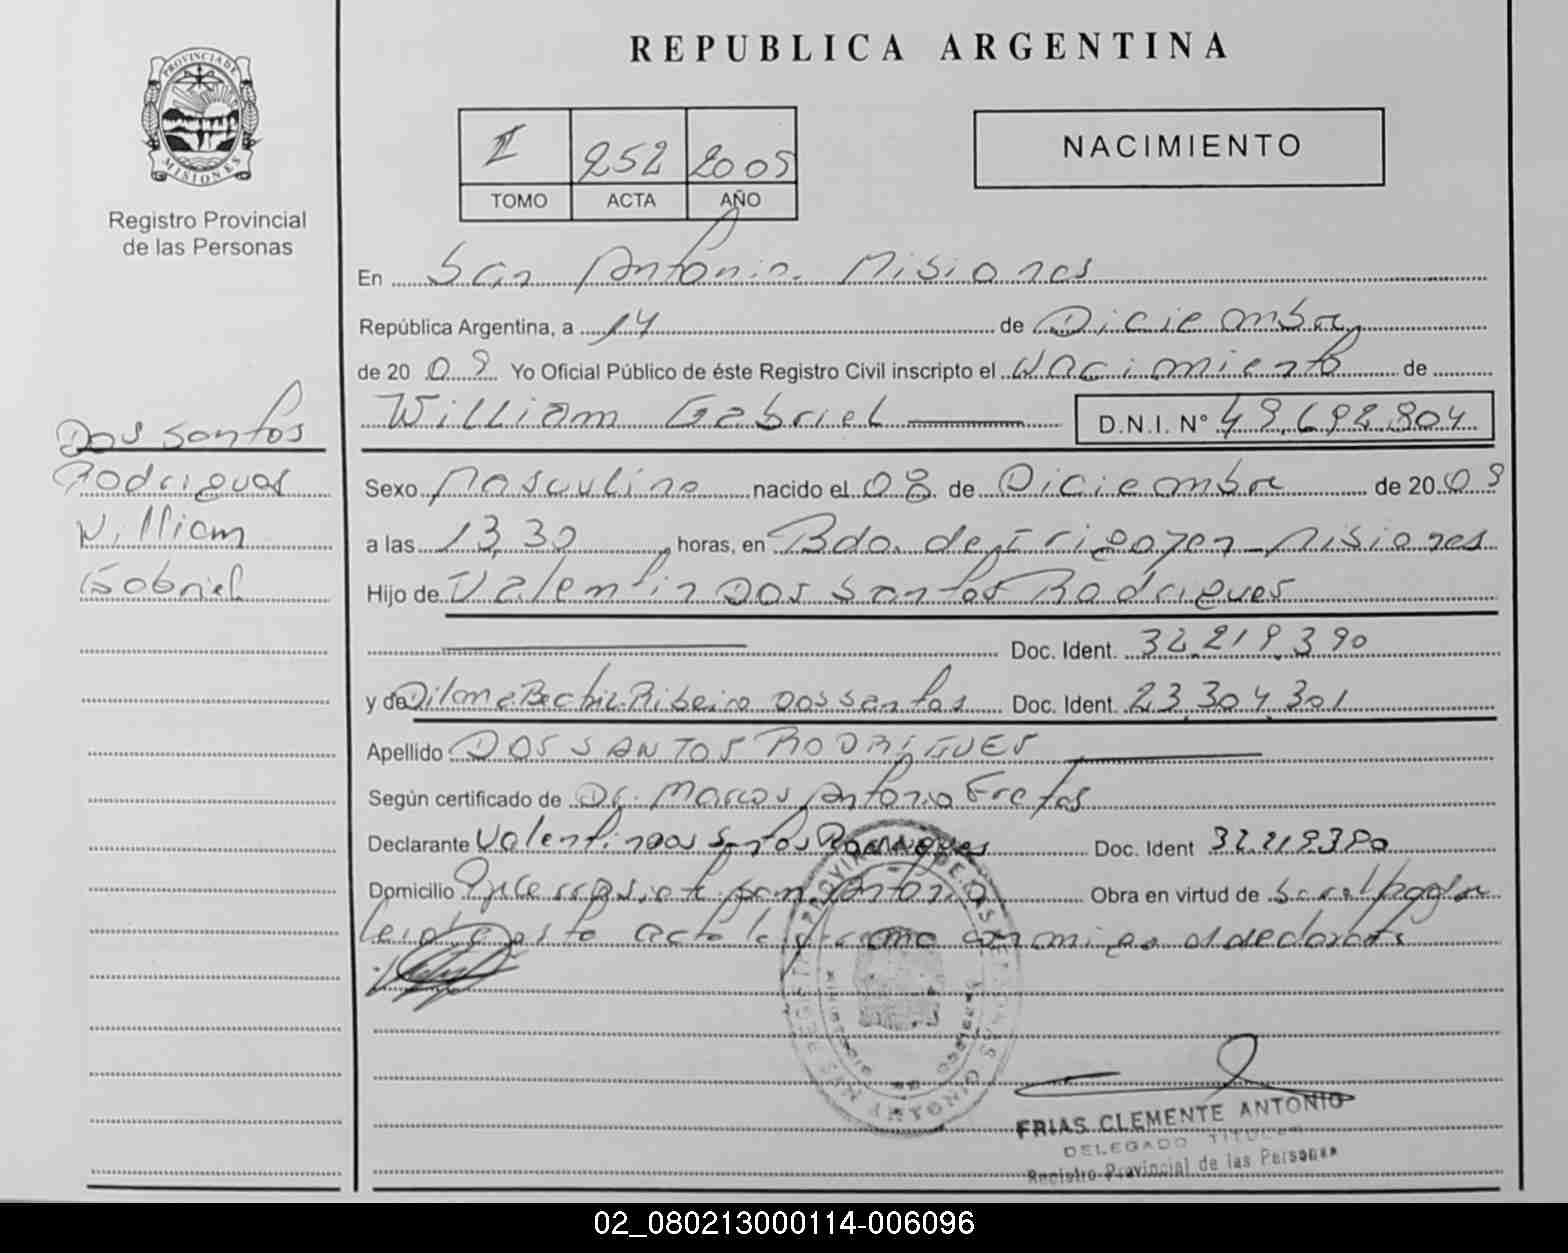 REPUBLICA ARGENTINA
PROVINCIA DE
MISIONES
Registro Provincial
de las Personas
II 252 2009
TOMO ACTA AÑO
NACIMIENTO
En San Antonio. Misiones
República Argentina, a 14 de Diciembre
de 20 09 Yo Oficial Público de éste Registro Civil inscripto el Nacimiento de
William Gabriel D.N.I. N° 49.692.804
Dos Santos
Rodrigues
William
Gabriel
Sexo Masculino nacido el 08 de Diciembre de 20 09
a las 13,30 horas, en Bdo. de Irigoyen - Misiones
Hijo de Valentin Dos Santos Rodrigues
Doc. Ident. 32.219.390
y de Beatriz Ribeiro Dos santos Doc. Ident. 23.304.301
Apellido DOS SANTOS RODRIGUES
Según certificado de Dr. Marcos Antonio Fretas
Declarante Valentin dos Santos Rodrigues Doc. Ident 32.219.390
Domicilio San Antonio Obra en virtud de
acta conmigo el declarante
FRIAS CLEMENTE ANTONIO
DELEGADO TITULAR
Registro Provincial de las Personas
02_080213000114-006096